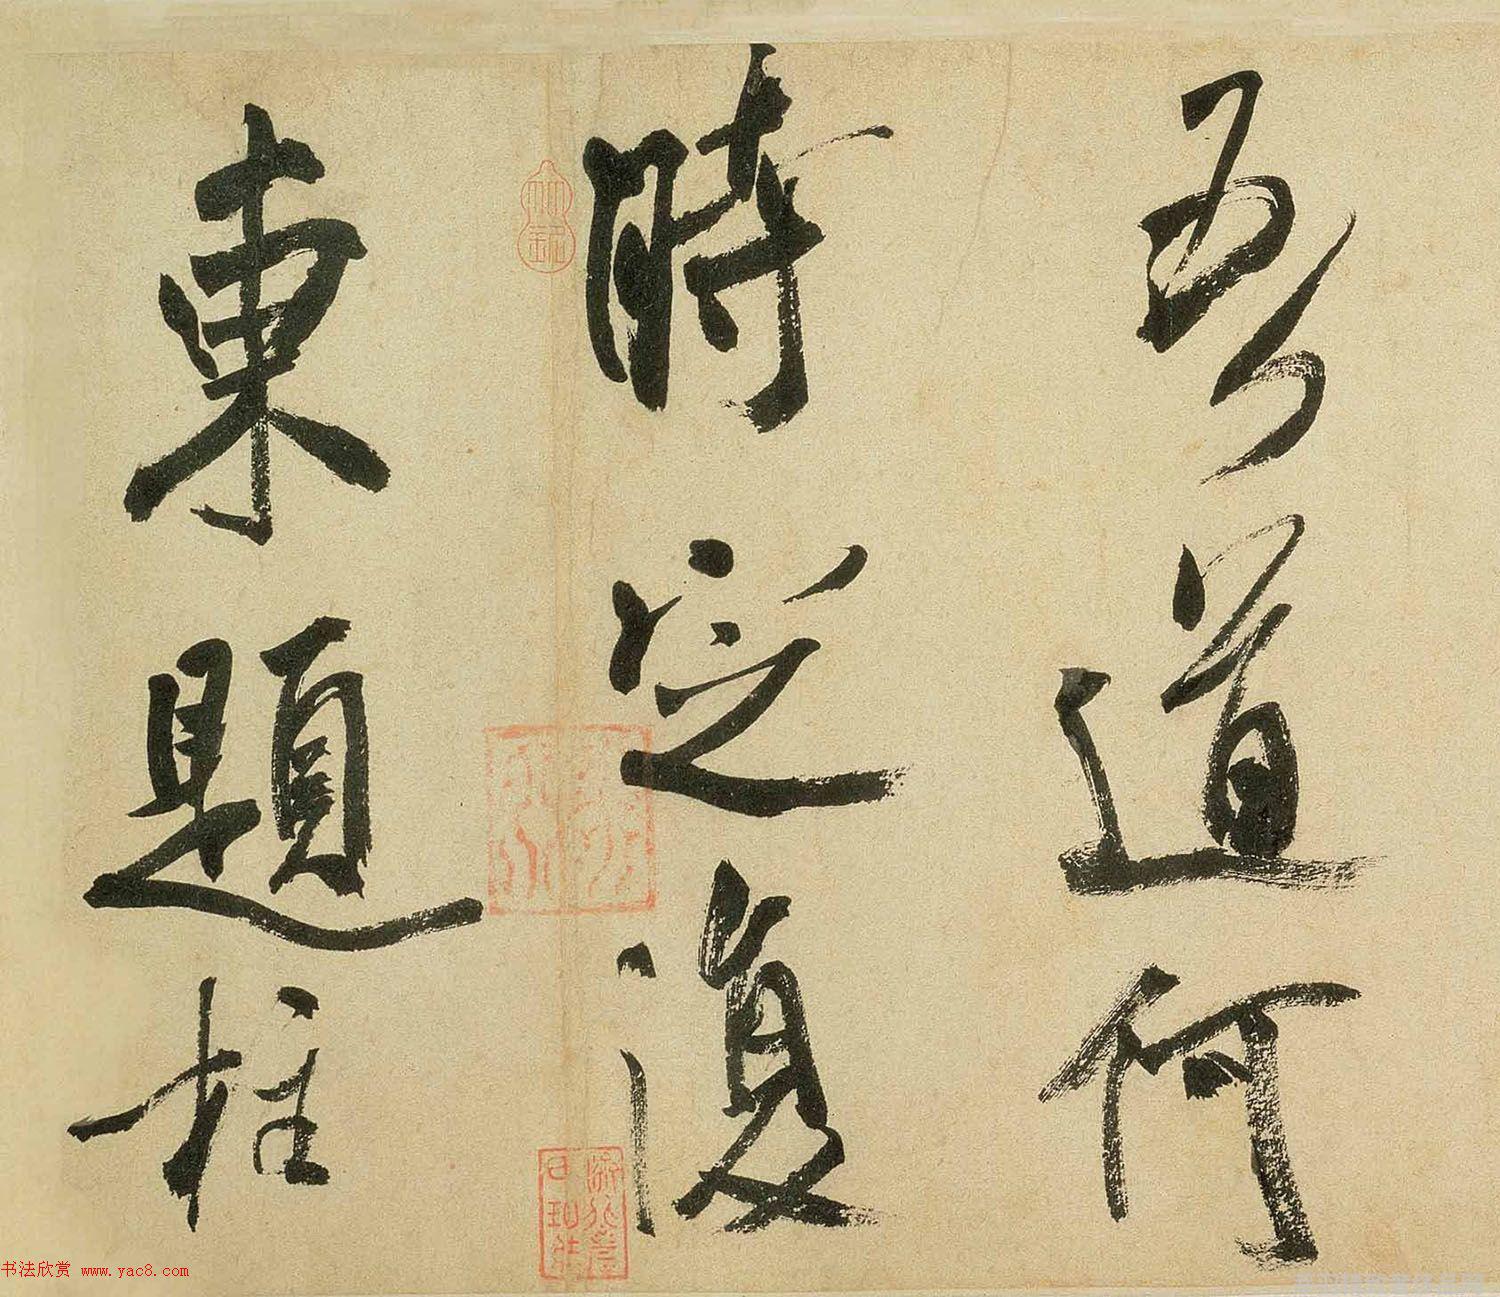 吾道何
時定復
東題柱
书法欣赏 www.yac8.com